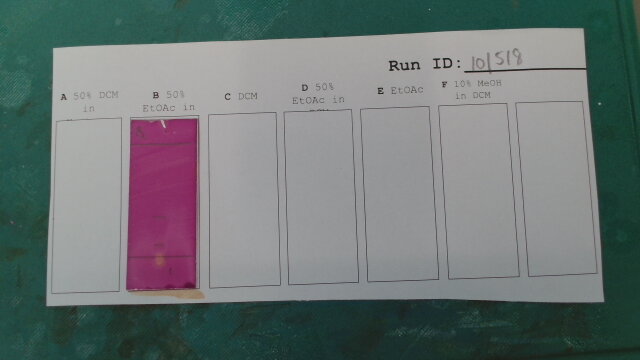 Run ID: 10/5/8
A 50% DCM in
B 50% EtOAc in
C DCM
D 50% EtOAc in
E EtOAc
F 10% MeOH in DCM